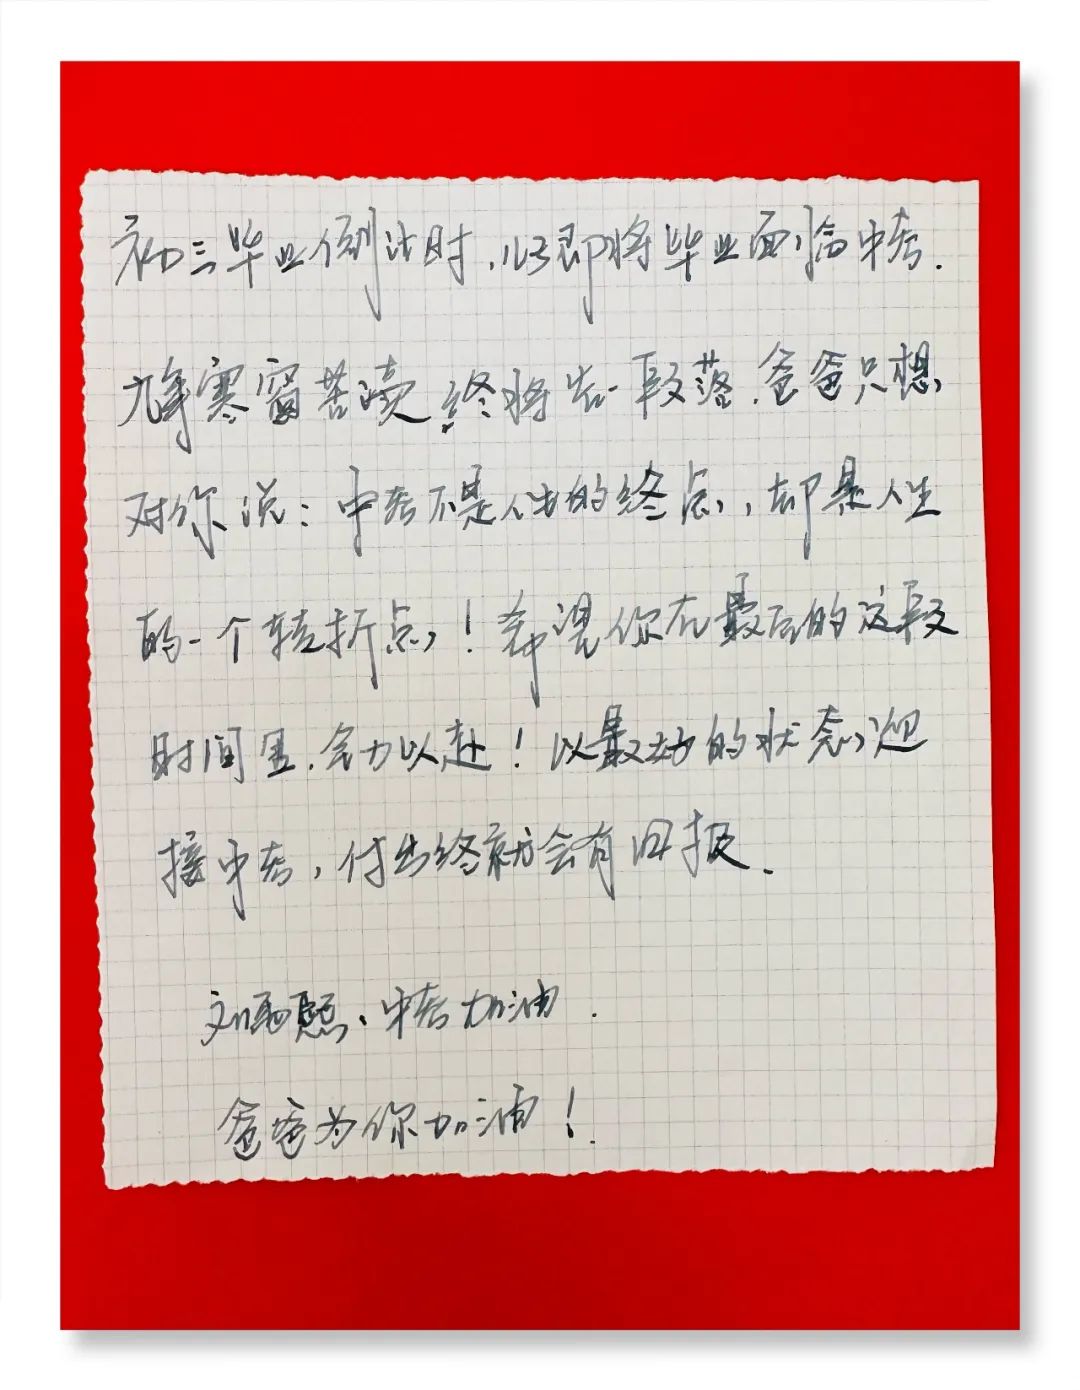 初三毕业倒计时,你即将毕业面临中考.
九年寒窗苦读,终将告一段落.爸爸只想
对你说:中考不是人生的终点,却是人生
的一个转折点!希望你在最后的这段
时间里.全力以赴!以最好的状态迎
接中考,付出终就会有回报.
刘 熙、中考加油.
爸爸为你加油!